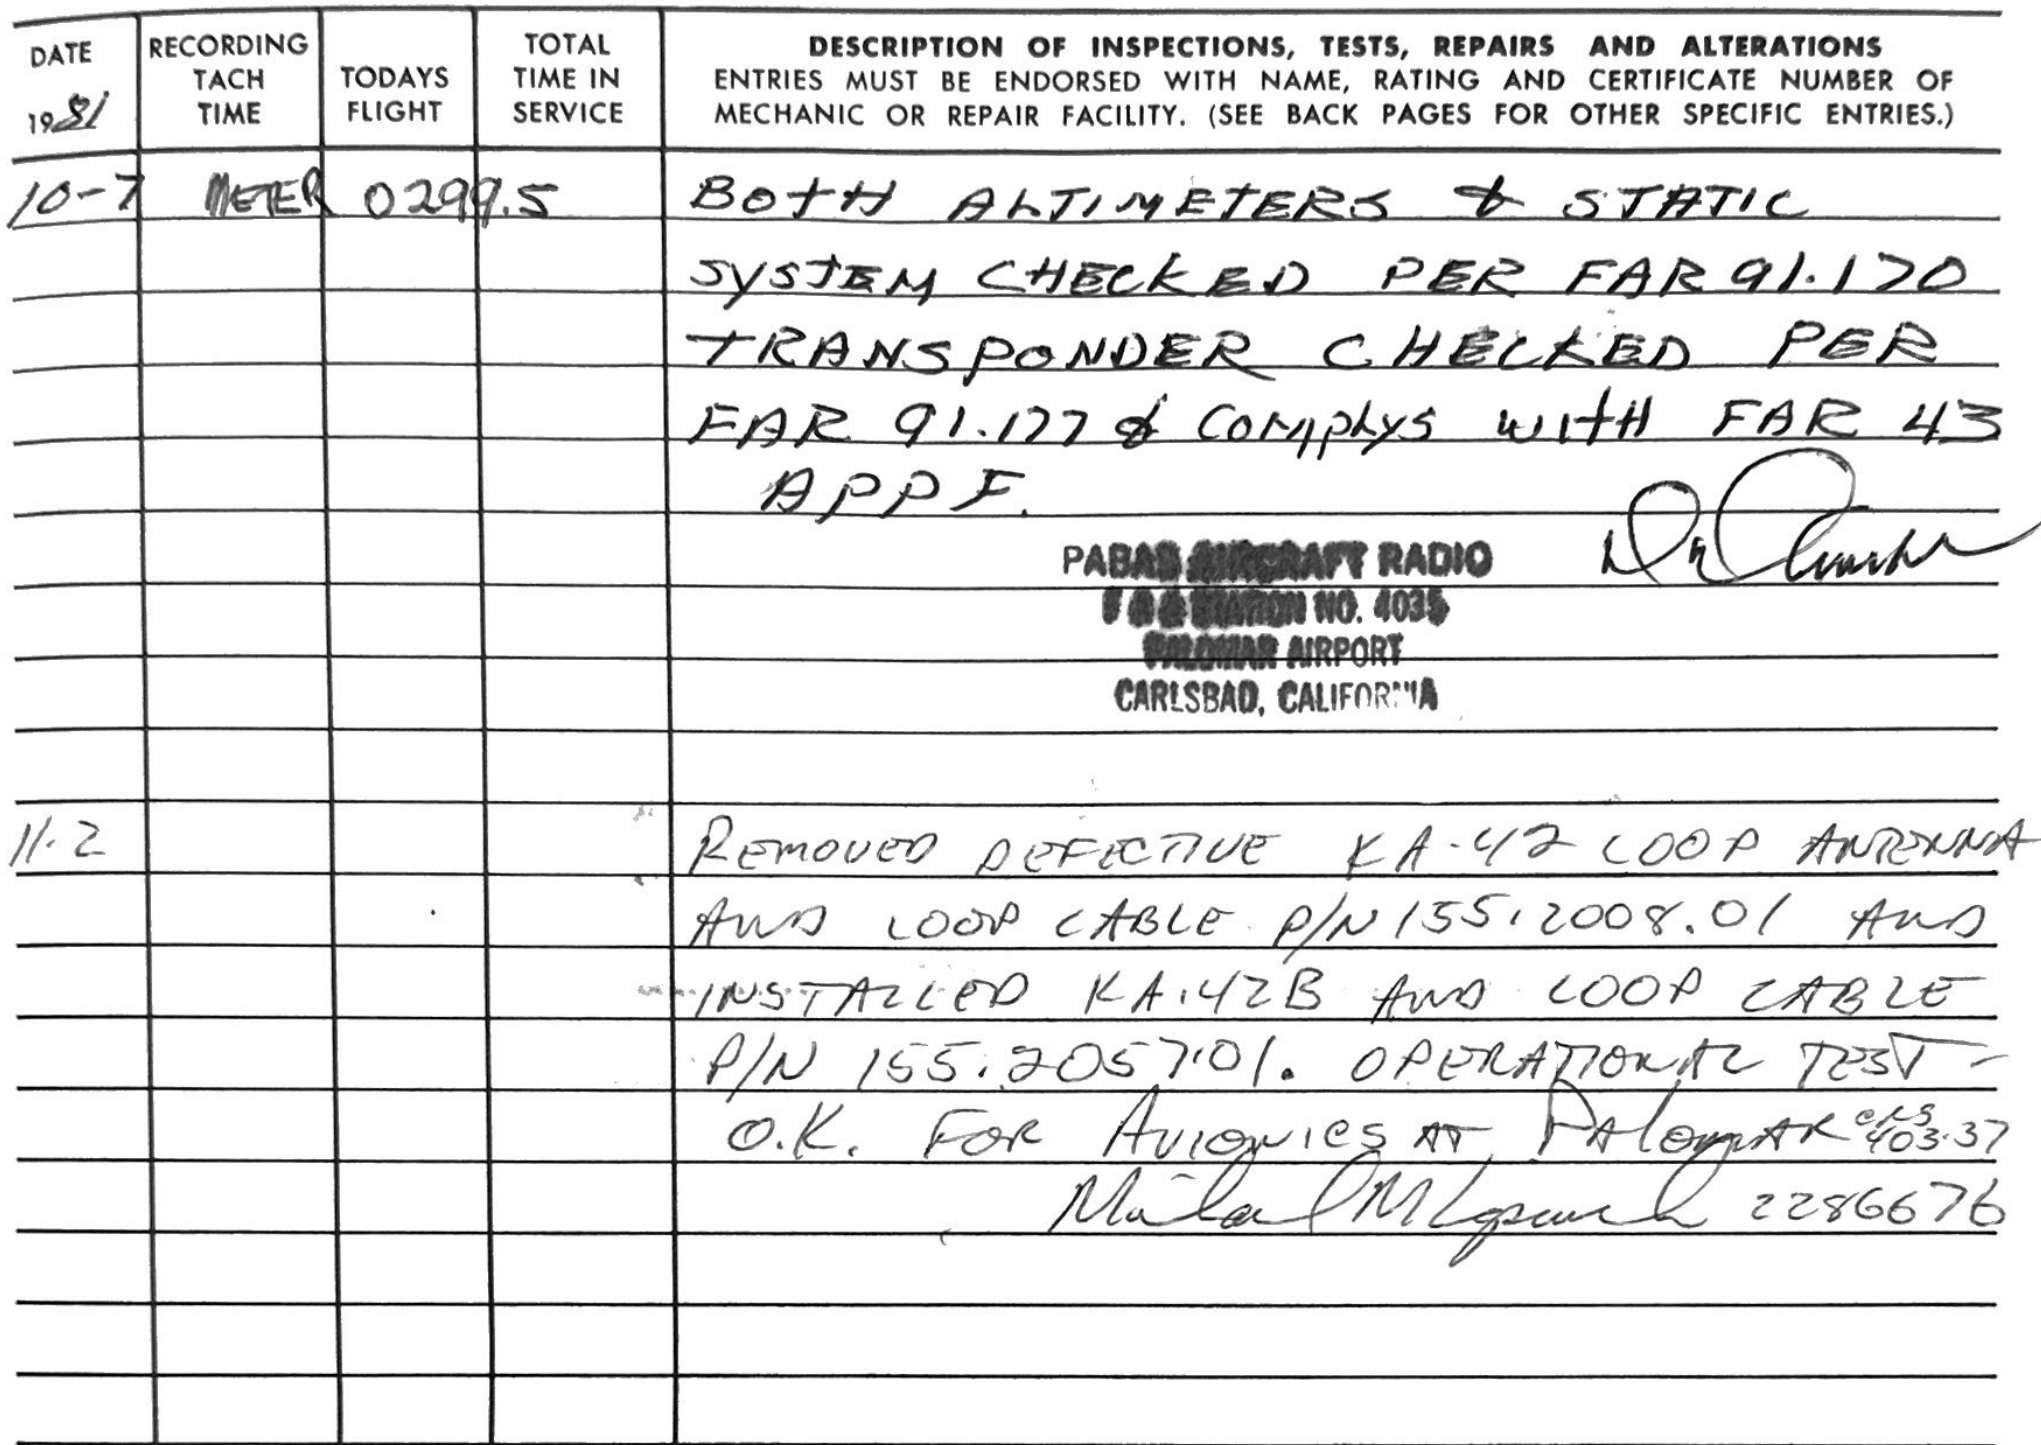 DATE
1981
RECORDING
TACH
TIME
TODAYS
FLIGHT
TOTAL
TIME IN
SERVICE
DESCRIPTION OF INSPECTIONS, TESTS, REPAIRS AND ALTERATIONS
ENTRIES MUST BE ENDORSED WITH NAME, RATING AND CERTIFICATE NUMBER OF
MECHANIC OR REPAIR FACILITY. (SEE BACK PAGES FOR OTHER SPECIFIC ENTRIES.)
10-7 METER 0299.5 BOTH ALTIMETERS & STATIC
SYSTEM CHECKED PER FAR 91.170
TRANSPONDER CHECKED PER
FAR 91.177 & COMPLYS WITH FAR 43
APP F.
AIRCRAFT RADIO
STATION NO. 4035
PALOMAR AIRPORT
CARLSBAD, CALIFORNIA
11.2 REMOVED DEFECTIVE KA-42 LOOP ANTENNA
AND LOOP CABLE P/N 155.2008.01 AND
INSTALLED KA.42B AND LOOP CABLE
P/N 155.2057.01. OPERATIONAL TEST -
O.K. FOR AVIONICS AT PALOMAR CRS 403-37
2286676